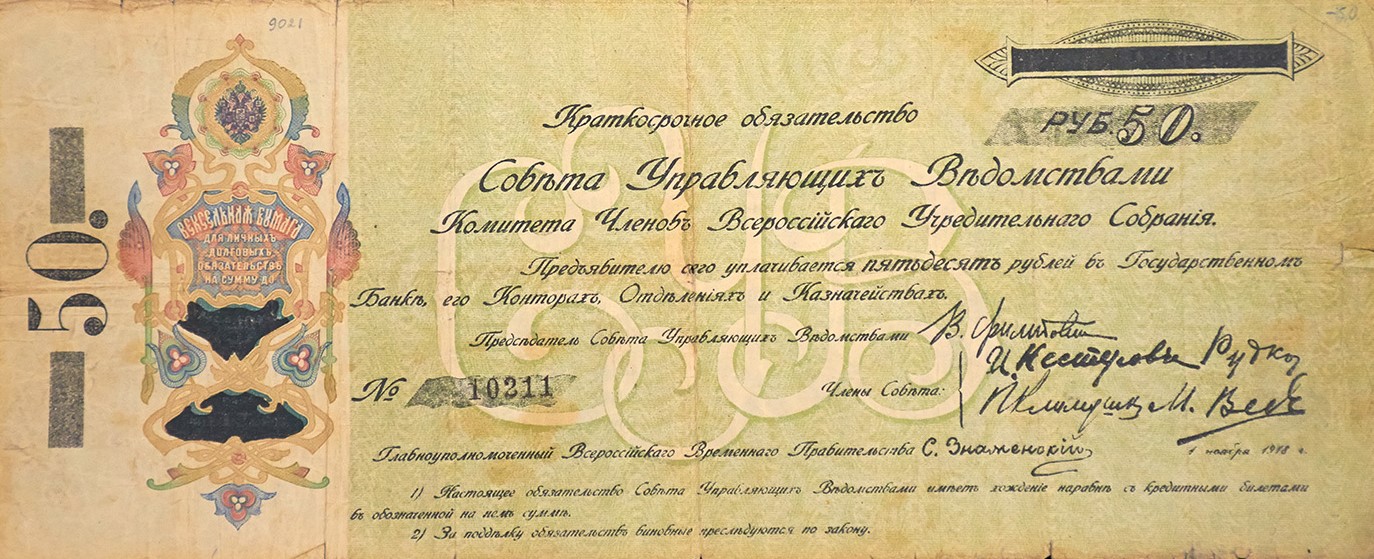 9021
-50
— 50. —
ВЕКСЕЛЬНАЯ БУМАГА
ДЛЯ ЛИЧНЫХЪ
ДОЛГОВЫХЪ
ОБЯЗАТЕЛЬСТВЪ
НА СУММУ ДО
РУБ. 50.
Краткосрочное обязательство
Совѣта Управляющихъ Вѣдомствами
Комитета Членовъ Всероссійскаго Учредительнаго Собранія.
Предъявителю сего уплачивается пятьдесятъ рублей въ Государственномъ
Банкѣ, его Конторахъ, Отдѣленіяхъ и Казначействахъ.
Предсѣдатель Совѣта Управляющихъ Вѣдомствами В. Филипповскій
№ 10211
Члены Совѣта: И. Нестеровъ Рудко
П. Климушкинъ М. Веденяпинъ
Главноуполномоченный Всероссійскаго Временнаго Правительства С. Знаменскій
1 ноября 1918 г.
1) Настоящее обязательство Совѣта Управляющихъ Вѣдомствами имѣетъ хожденіе наравнѣ съ кредитными билетами
въ обозначенной на немъ суммѣ.
2) За поддѣлку обязательствъ виновные преслѣдуются по закону.